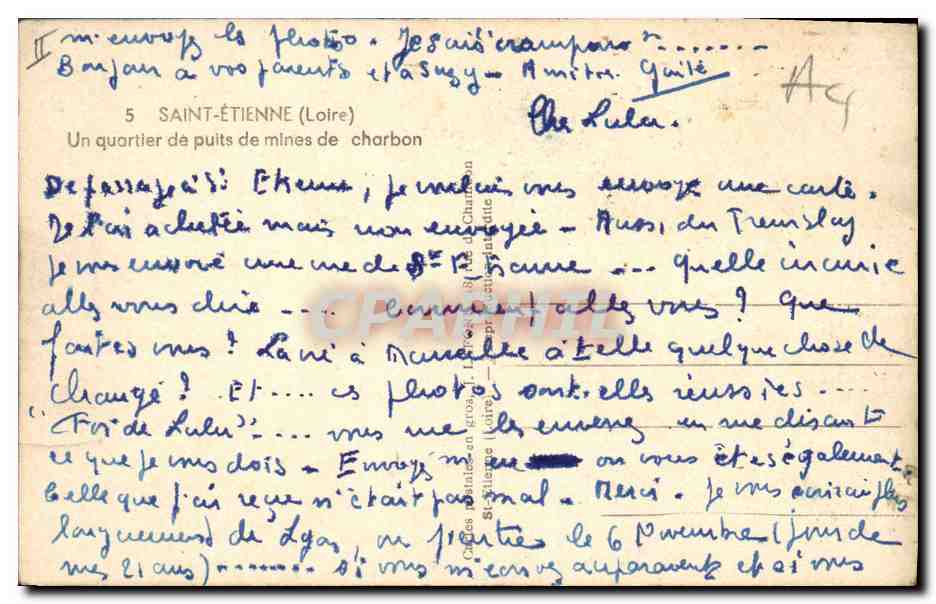 II m'envoyez les photos. Je sais "cramponne" .......
Bonjour à vos parents et à Suzy - Amitiés. Gaité
5 SAINT-ÉTIENNE (Loire)
Un quartier de puits de mines de charbon
Che Lulu.
De passage à St Etienne, je voulais vous envoyer une carte.
Je l'ai achetée mais non envoyée - Aussi du Tremblay
je vous envoie une vue de St Etienne ... quelle incurie
allez vous dire .... Comment allez vous ? Que
faites vous ? La vie à Marseille a t elle quelque chose de
changé ? Et .... ces photos sont-elles réussies ....
"Foi de Lulu" .... vous me les enverrez en me disant
ce que je vous dois - Envoyez m'en où vous êtes également
Celle que j'ai reçue n'était pas mal. Merci. Je vous écrirai plus
longuement de Lyon, où j'entre le 6 Novembre (jour de
mes 21 ans) ........ si vous m'écrivez auparavant et si vous
Cartes postales en gros, J.
St-Etienne (Loire). — Reproduction interdite
CPARHIL